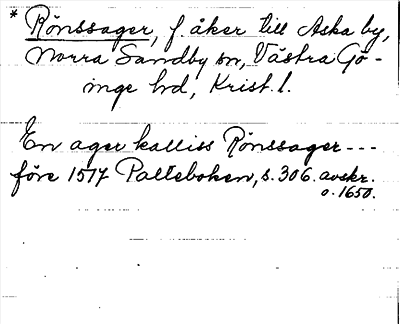 * Rönssager, f. åker till Aska by,
Norra Sandby sn, Västra Gö-
inge hd, Krist. l.
En ager kalliss Rönssager ---
före 1517 Palteboken, s. 306. avskr.
o. 1650.